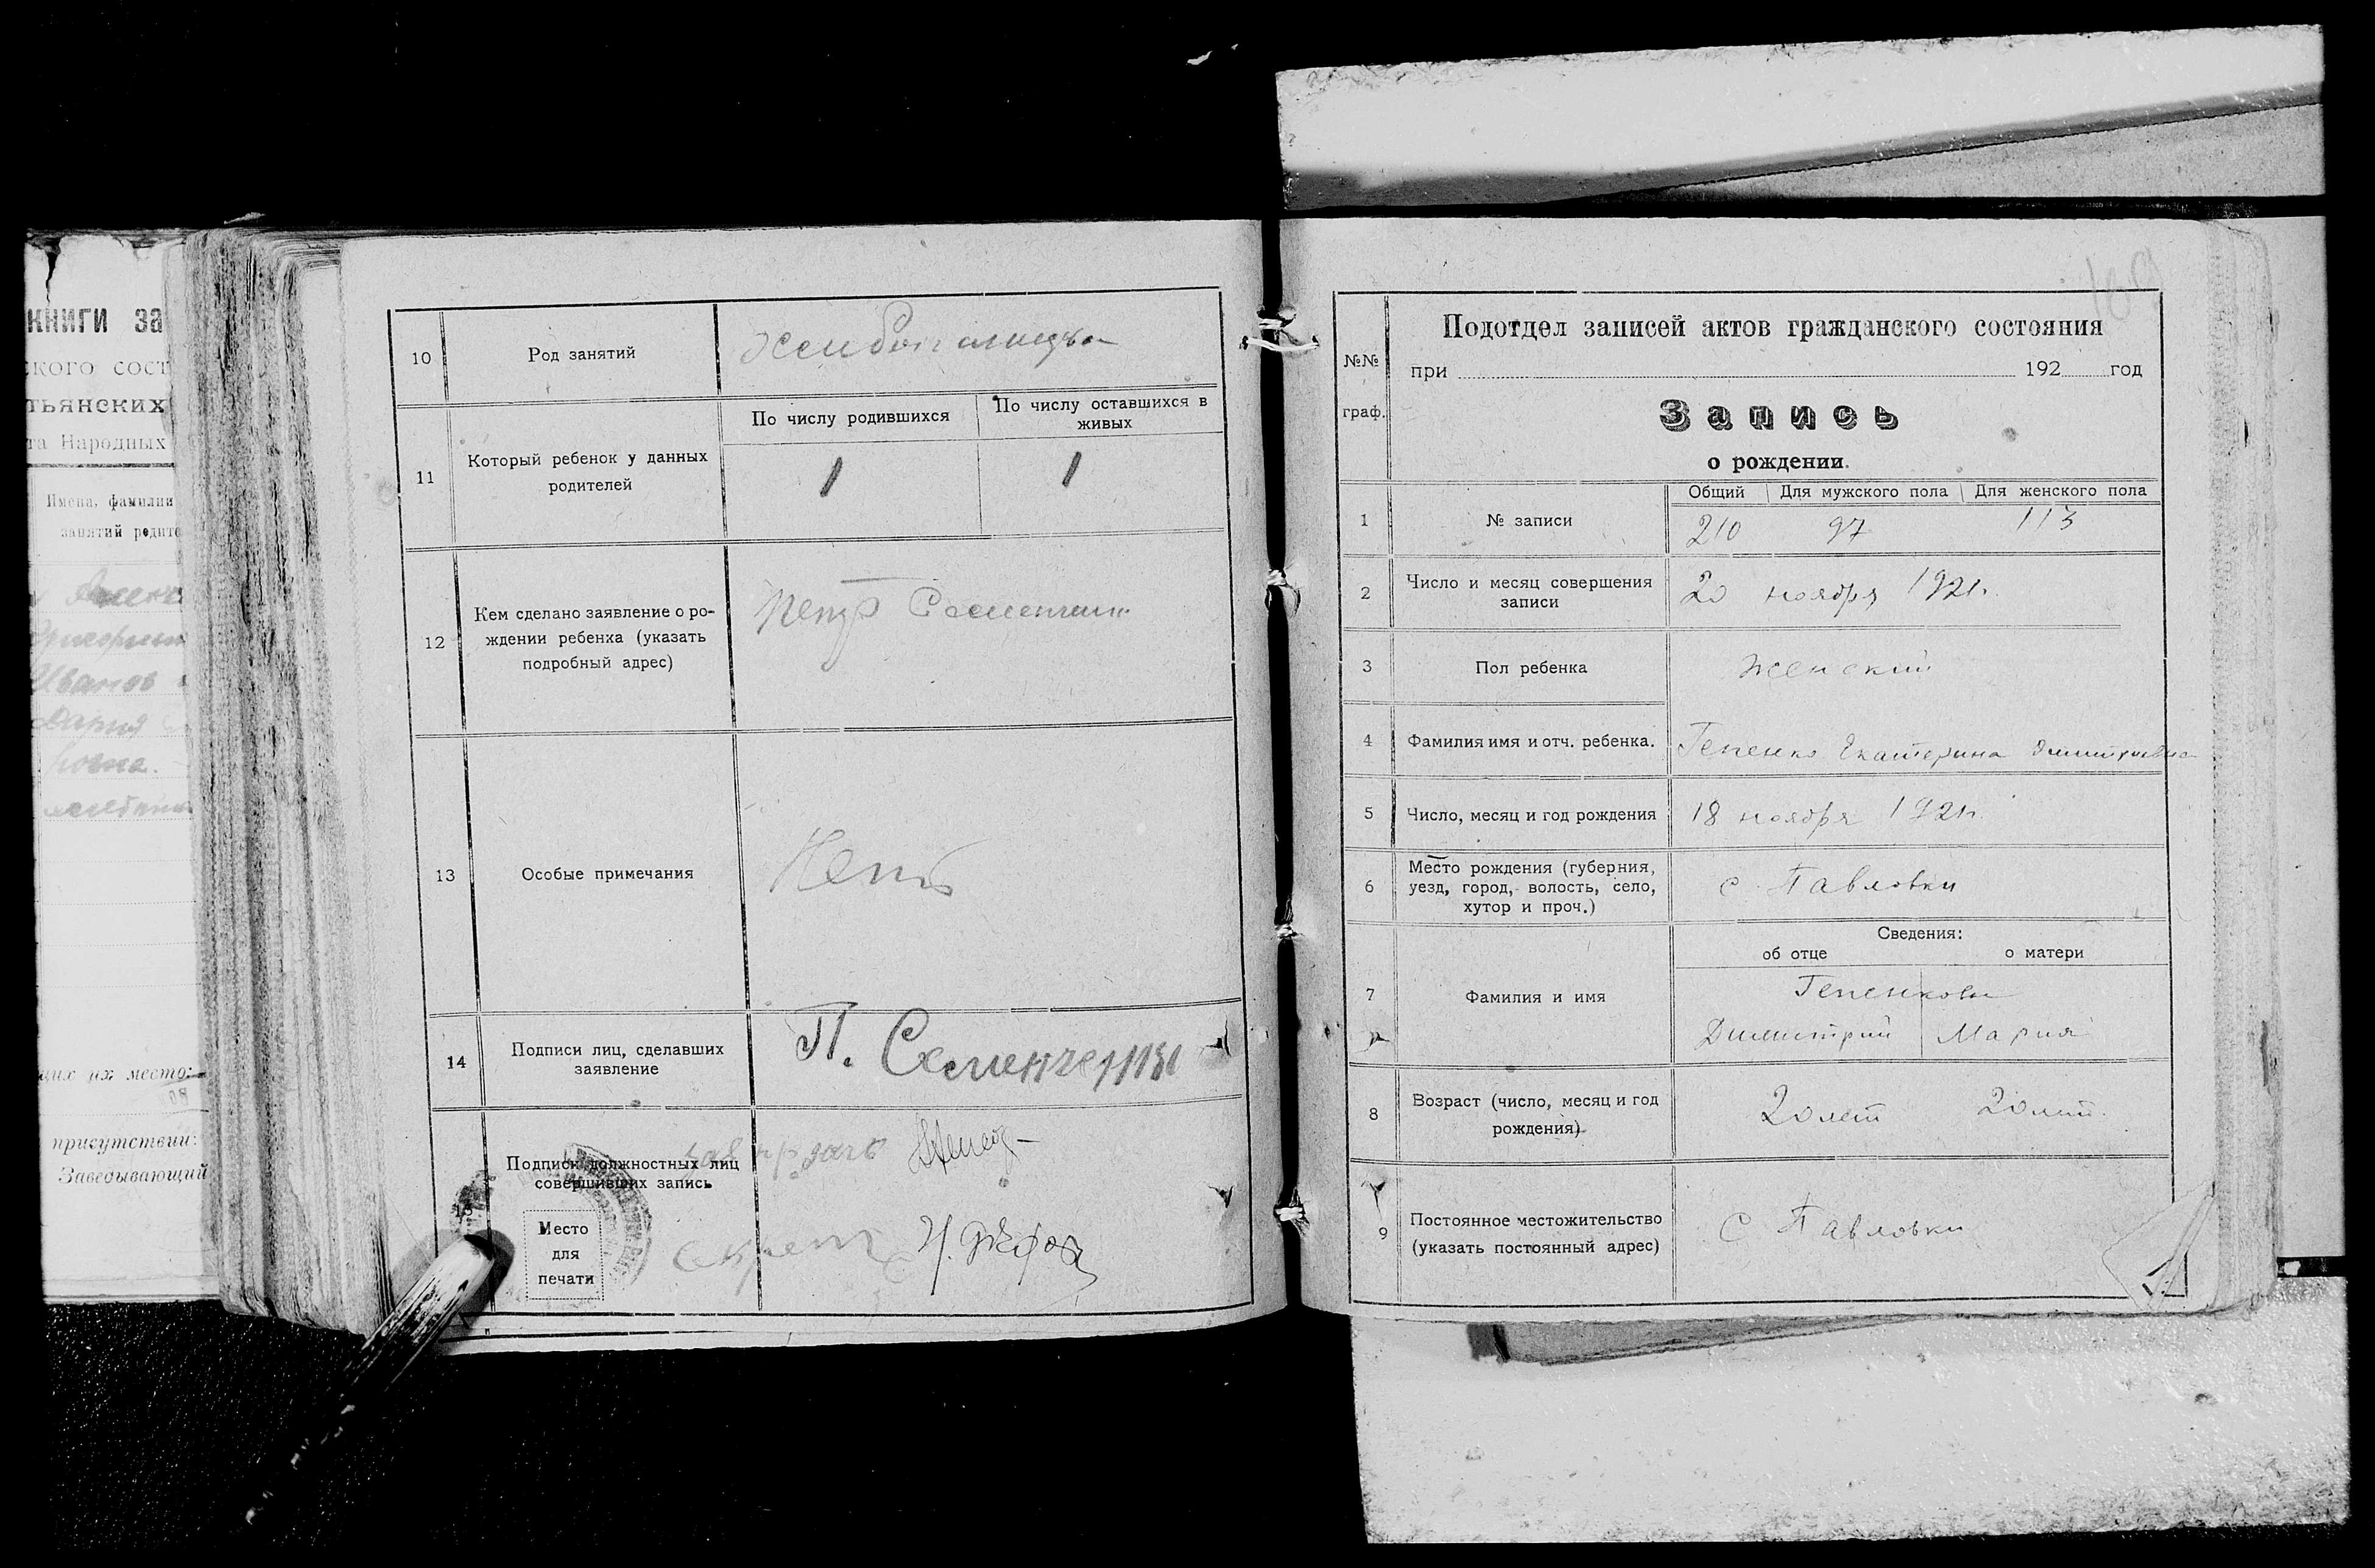 книги за
ского сост
тьянских
та Народных
Имена, фамилии
занятий родите
Иванов
Дария
щих их место:
присутствии:
Заведывающий
10 Род занятий
11 Который ребенок у данных
родителей
По числу родившихся
По числу оставшихся в
живых
1 1
12 Кем сделано заявление о ро-
ждении ребенка (указать
подробный адрес)
Петр
13 Особые примечания
Нетъ
14 Подписи лиц, сделавших
заявление
П.
15 Подписи должностных лиц
совершивших запись
Место
для
печати
№№
граф.
Подотдел записей актов гражданского состояния
при 192 год
Запись
о рождении.
1 № записи
Общий Для мужского пола Для женского пола
210 97 113
2 Число и месяц совершения
записи
20 ноября 1921г.
3 Пол ребенка
женский
4 Фамилия имя и отч. ребенка.
Гепенко Екатерина Димитриевна
5 Число, месяц и год рождения
18 ноября 1921г.
6 Место рождения (губерния,
уезд, город, волость, село,
хутор и проч.)
с Павловки
7 Фамилия и имя
Сведения:
об отце о матери
Гепенковы
Димитрий Мария
8 Возраст (число, месяц и год
рождения)
20 лет 20 лет.
9 Постоянное местожительство
(указать постоянный адрес)
С Павловки